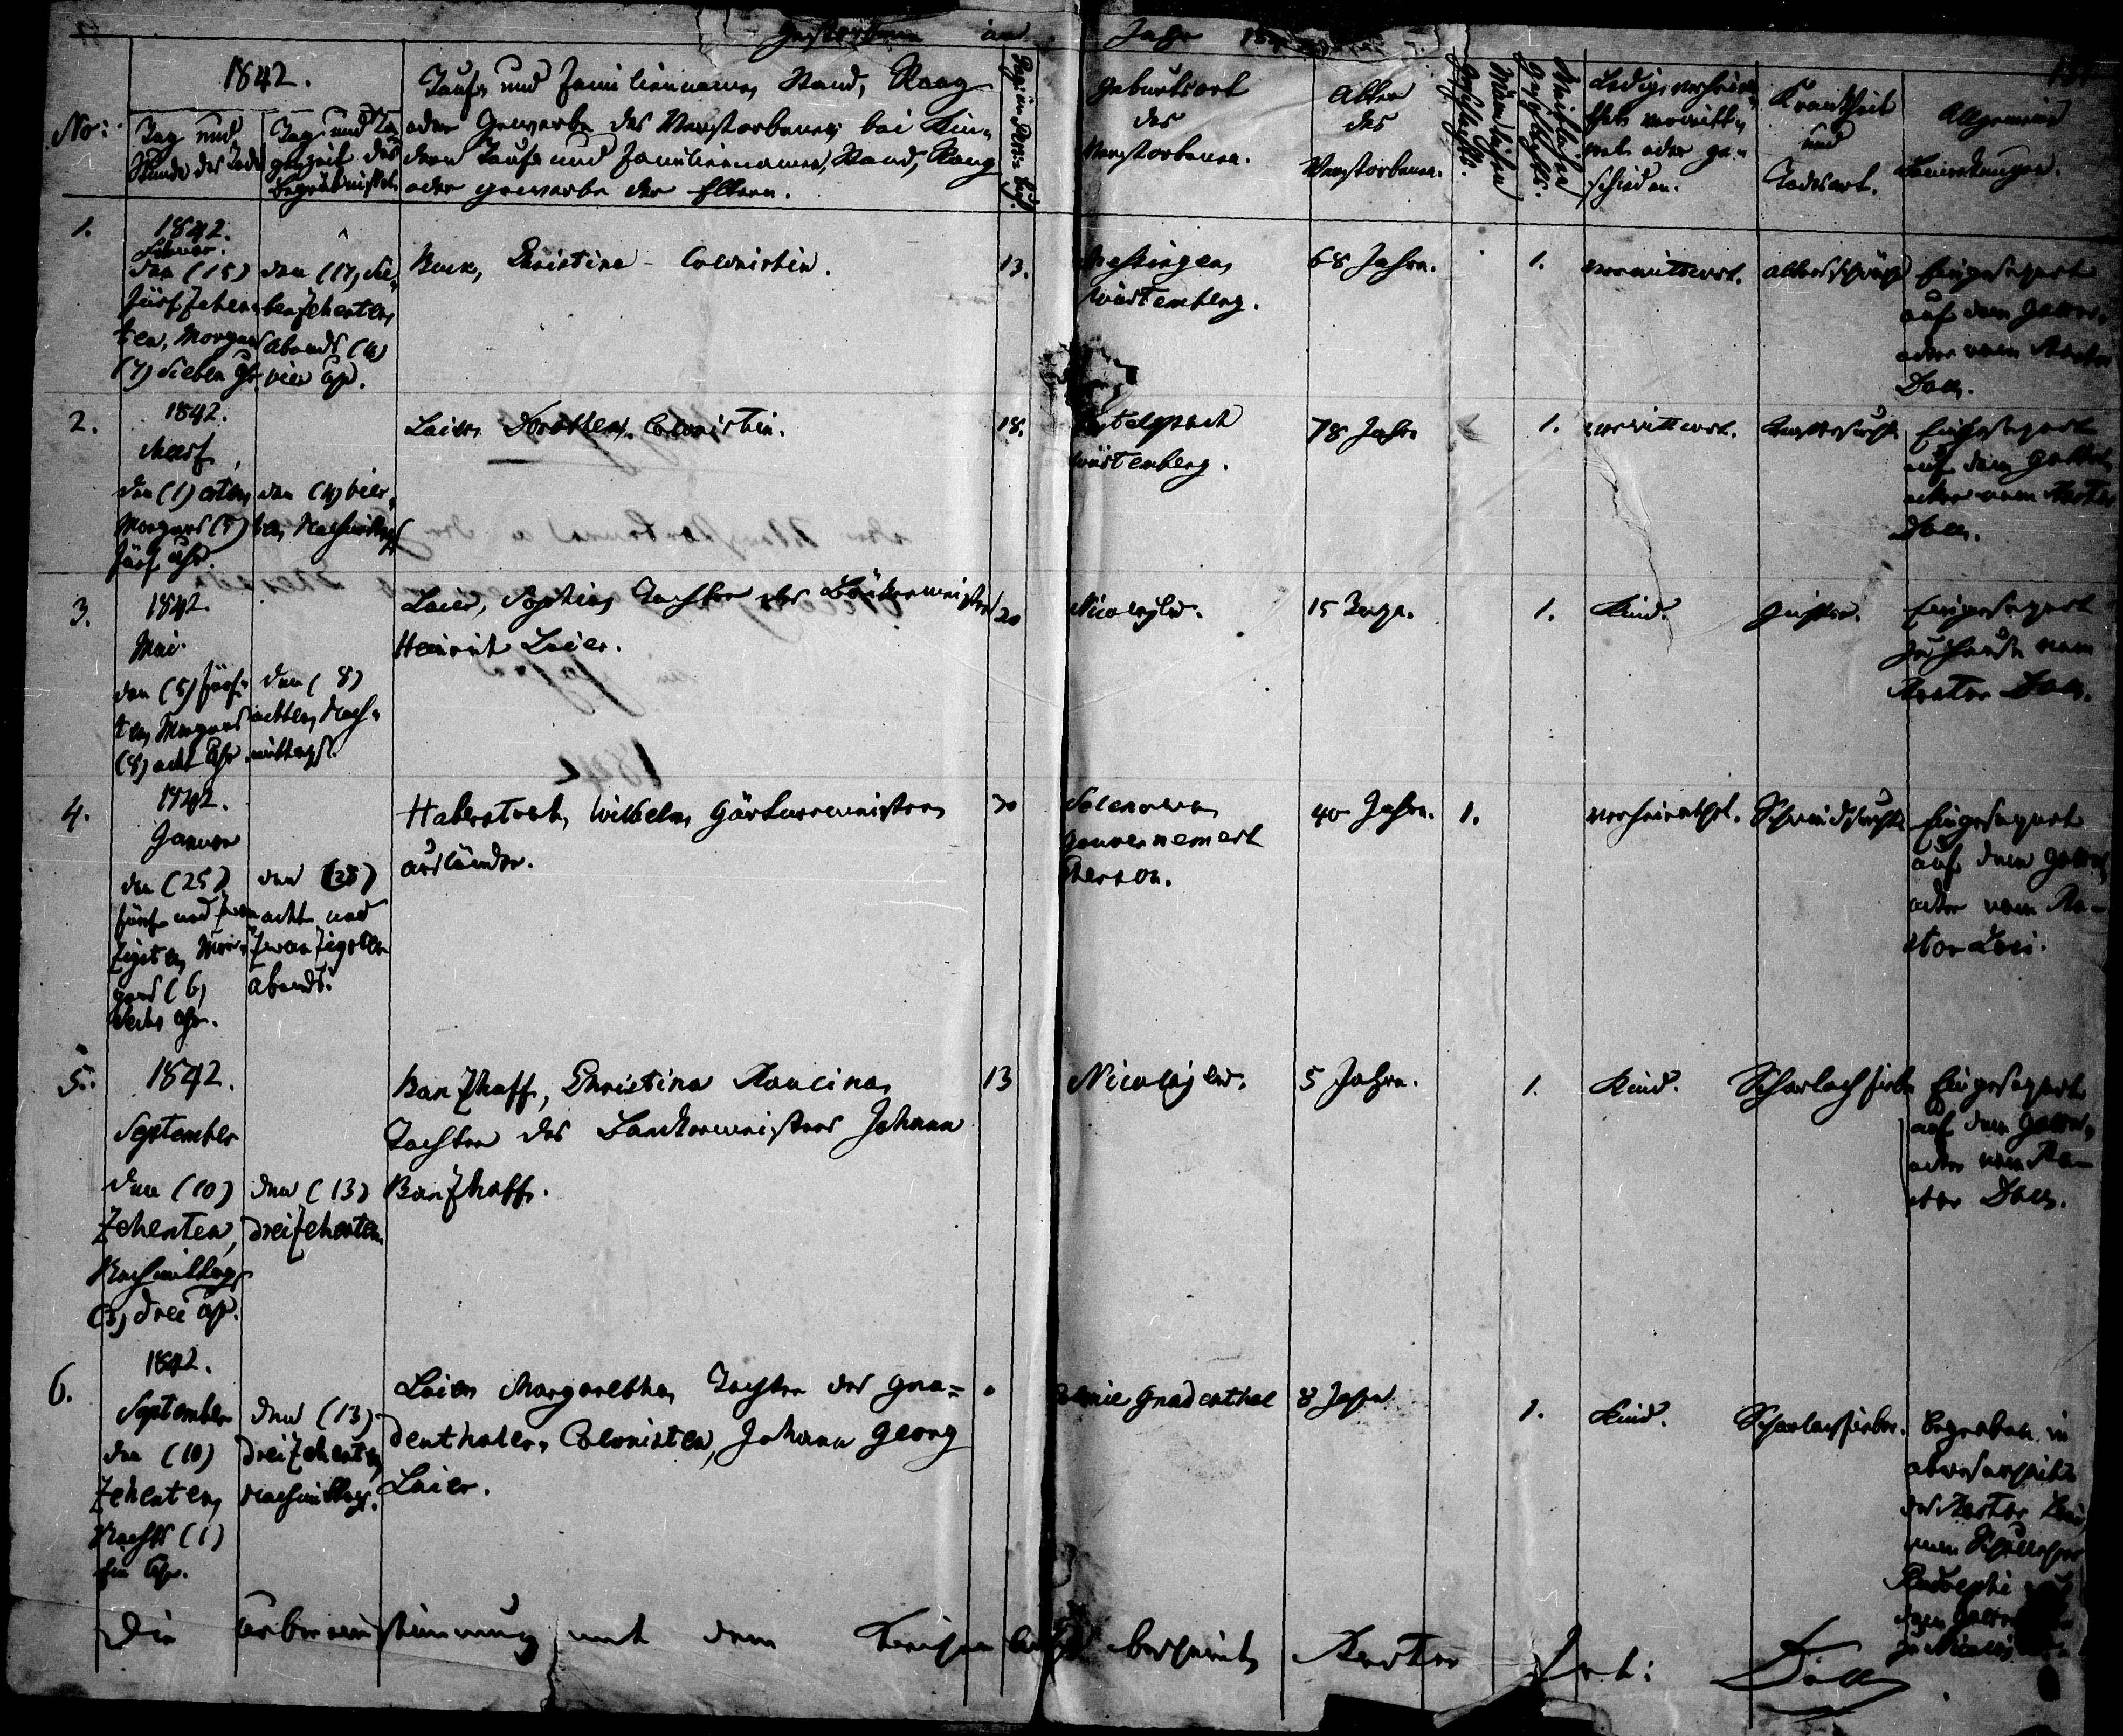 Gestorbene im Jahr 184
1842.
No:
Tag und
Stunde des Todes
Tag und Ta-
geszeit des
Begräbnisses
Taufs und Familienname, Stand, Rang
oder Gewerbe des Verstorbenen, bei Kin-
dern Taufs und Familiennamen, Stand, Rang
oder Gewerbe der Eltern.
Geburtsort
des
Verstorbenen.
Alter
des
Verstorbenen.
Männlichen
Geschlechts.
Weiblichen
Geschlechts.
Ledig, verheira-
thet, verwitt-
wet oder ge-
schieden.
Krankheit
und
Todesart.
Allgemeine
Bemerkungen.
1.
1842.
Februar.
den (15)
fünfzehen-
ten, Morgens
(7) sieben Uhr
den (17) sie-
benzehenten,
abends (4)
vier Uhr.
Christina - Colonistin.
13.
Würtemberg.
68 Jahre.
1.
verwittwet.
Eingesegnet
auf dem Gottes-
acker vom Pastor
Doll.
2.
1842.
Merz
den (1) ersten,
Morgens (5)
fünf Uhr.
den (4) vier-
ten, Nachmittags
Laier, Dorothea, Colonistin.
18.
Würtenberg.
78 Jahre
1.
verwittwet.
Eingesegnet
auf dem Gottes-
acker vom Pastor
Doll.
3.
1842.
Mai.
den (5) fünf-
ten, Morgens
(8) acht Uhr
den (8)
achten, Nach-
mittags.
Laier, Sophia, Tochter des Bäckermeisters
Heinrich Laier.
20
Nicolajew.
15 Tage.
1.
Kind.
Gichter.
Eingesegnet
zu Hause vom
Pastor Doll.
4.
1842.
Januar
den (25)
fünf und zwan-
zigsten, Mor-
gens (6)
sechs Uhr.
den (28)
acht und
zwanzigsten
abends.
Haberstock, Wilhelm, Gärtnermeister,
ausländer.
30
Gouvernement
Cherson.
40 Jahre.
1.
verheirathet.
Schwindsucht
Eingesegnet
auf dem Gottes-
acker vom Pa-
stor Doll.
5.
1842.
September
den (10)
zehenten,
Nachmittags
(3) drei Uhr.
den (13)
dreizehenten
Banzhaff, Christina Paulina,
Tochter des Bäckermeisters Johann
Banzhaff.
13
Nicolajew.
5 Jahre.
1.
Kind.
Scharlachfieber
Eingesegnet
auf dem Gottes-
acker vom Pa-
stor Doll.
6.
1842.
September
den (10)
zehenten,
Nachts (1)
ein Uhr.
den (13)
dreizehenten,
Nachmittags.
Laier, Margaretha, Tochter des Gna-
denthaler, Colonisten, Johann Georg
Laier.
Colonie Gnadenthal
8 Jahre
1.
Kind.
Scharlachfieber.
Begraben in
abwesenheit
des Pastor Doll,
vom Schullehrer
Die Uebereinstimmung mit dem Kirchenbuch bescheint, Pastor Doll